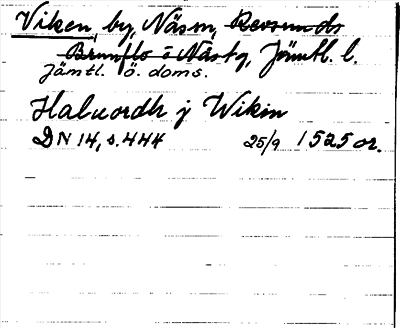 Viken, by, Näsm, Revsunds
Brunflo o Näs tg, Jämtl. l.
Jämtl. ö. doms.
Haluordh j Wikin
DN 14, s. 444 25/9 1525 or.